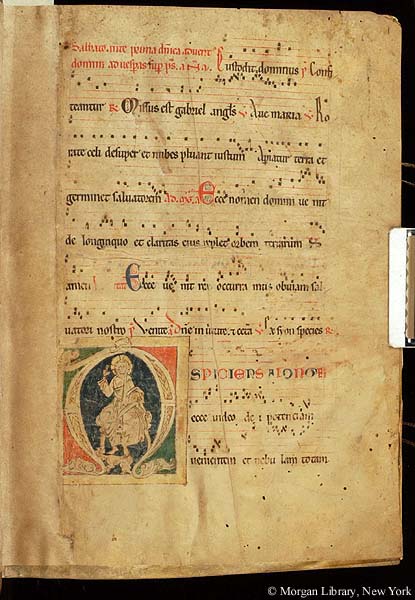 Sabbato ante prima dnica advent
domini ad vesperas sup ps. a Custodit dominus p Confi
teantur R Missus est gabriel angls V Aue maria V Ro
rate celi desuper et nubes pluant iustum Aperiatur terra et
germinet saluatorem Ecce nomen domini ue nit
de longinquo et claritas eius replet orbem terrarum
Ecce ue nit rex occurra mus obuiam sal
uatori nostro p Venite V Ex syon species R
ASPICIENS A LONGE
ecce uideo de i potenciam
uenientem et nebu lam totam
© Morgan Library, New York